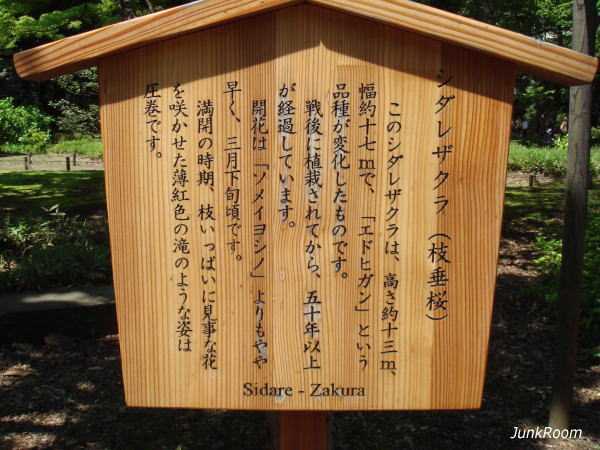 シダレザクラ（枝垂桜）
このシダレザクラは、高さ約十三m、
幅約十七mで、「エドヒガン」という
品種が変化したものです。
戦後に植栽されてから、五十年以上
が経過しています。
開花は「ソメイヨシノ」よりもやや
早く、三月下旬頃です。
満開の時期、枝いっぱいに見事な花
を咲かせた薄紅色の滝のような姿は
圧巻です。
Sidare - Zakura
JunkRoom